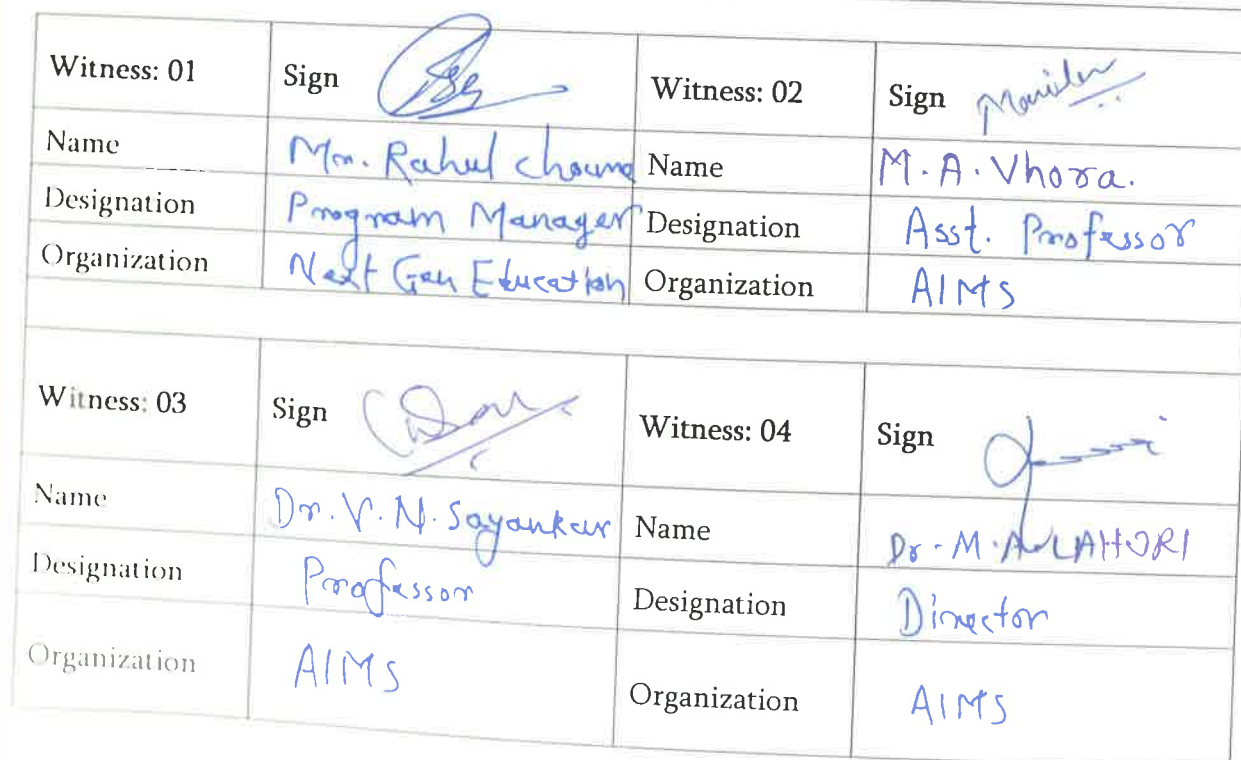 Witness: 01 Sign Witness: 02 Sign
Name Mr. Rahul Name M.A. Vhora.
Designation Program Manager Designation Asst. Professor
Organization Next Gen Education Organization AIMS
Witness: 03 Sign Witness: 04 Sign
Name Dr. V. N. Sayankar Name Dr. M. A. LAHORI
Designation Professor Designation Director
Organization AIMS Organization AIMS